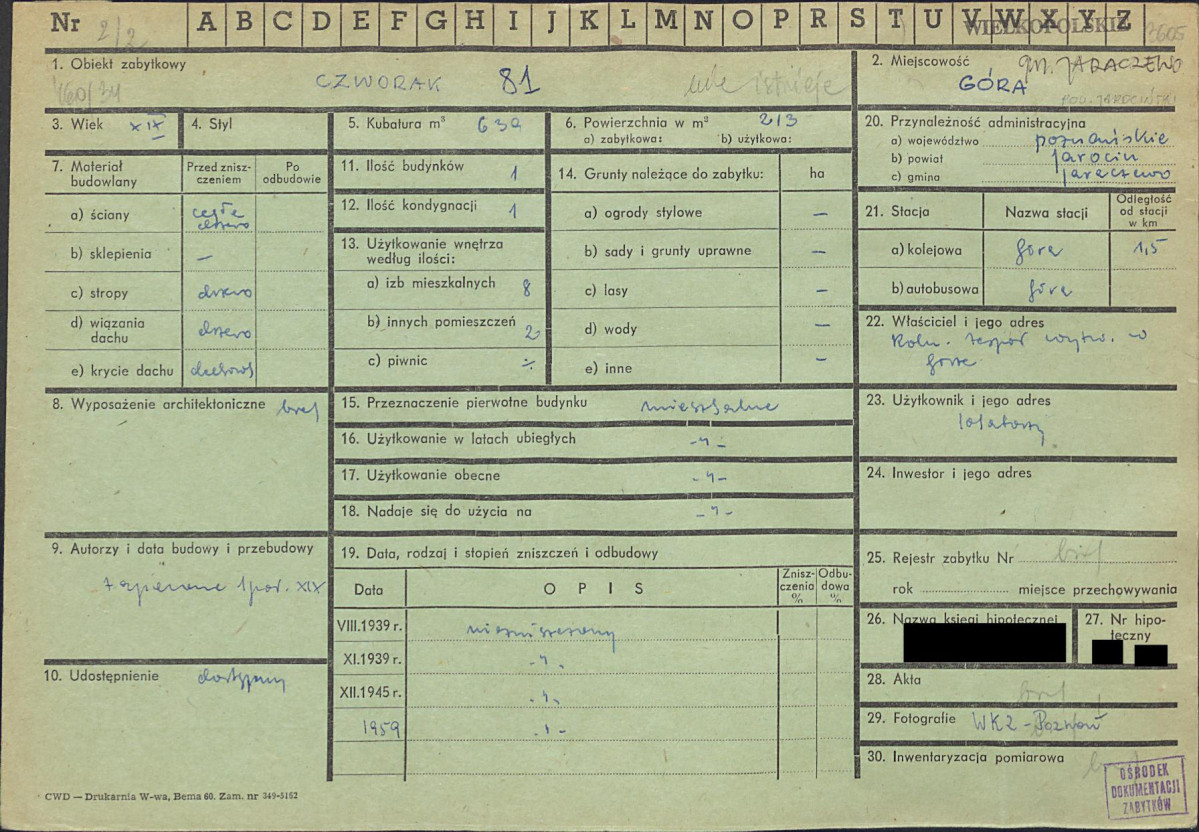 Nr 2/2 A B C D E F G H I J K L M N O P R S T U V W X Y Z
WIELKOPOLSKIE 3605
1. Obiekt zabytkowy
CZWORAK 81 nie istnieje
460/34
2. Miejscowość gm. JARACZEWO
GÓRA
POW. JAROCIŃSKI
3. Wiek XIX
4. Styl
5. Kubatura m³ 639
6. Powierzchnia w m² 213
a) zabytkowa: b) użytkowa:
20. Przynależność administracyjna
a) województwo poznańskie
b) powiat Jarocin
c) gmina Jaraczewo
7. Materiał budowlany
Przed zniszczeniem
Po odbudowie
a) ściany cegła drzewo
b) sklepienia —
c) stropy drzewo
d) wiązania dachu drzewo
e) krycie dachu
11. Ilość budynków 1
12. Ilość kondygnacji 1
13. Użytkowanie wnętrza według ilości:
a) izb mieszkalnych 8
b) innych pomieszczeń 2
c) piwnic ÷
14. Grunty należące do zabytku: ha
a) ogrody stylowe —
b) sady i grunty uprawne —
c) lasy —
d) wody —
e) inne —
21. Stacja Nazwa stacji Odległość od stacji w km
a) kolejowa Góra 1,5
b) autobusowa Góra
22. Właściciel i jego adres
Roln. zespół wytw. w
Górze
8. Wyposażenie architektoniczne brak
15. Przeznaczenie pierwotne budynku mieszkalne
16. Użytkowanie w latach ubiegłych -"-
17. Użytkowanie obecne -"-
18. Nadaje się do użycia na -"-
23. Użytkownik i jego adres
lokatorzy
24. Inwestor i jego adres
9. Autorzy i data budowy i przebudowy
zapewne 1 poł. XIX
10. Udostępnienie dostępny
19. Data, rodzaj i stopień zniszczeń i odbudowy
Data OPIS Zniszczenia % Odbudowa %
VIII.1939 r. niezniszczony
XI.1939 r. -"-
XII.1945 r. -"-
1959 -"-
25. Rejestr zabytku Nr brak
rok miejsce przechowywania
26. Nazwa księgi hipotecznej
27. Nr hipoteczny
28. Akta brak
29. Fotografie WKZ - Poznań
30. Inwentaryzacja pomiarowa brak
OŚRODEK
DOKUMENTACJI
ZABYTKÓW
CWD — Drukarnia W-wa, Bema 60. Zam. nr 349-5162